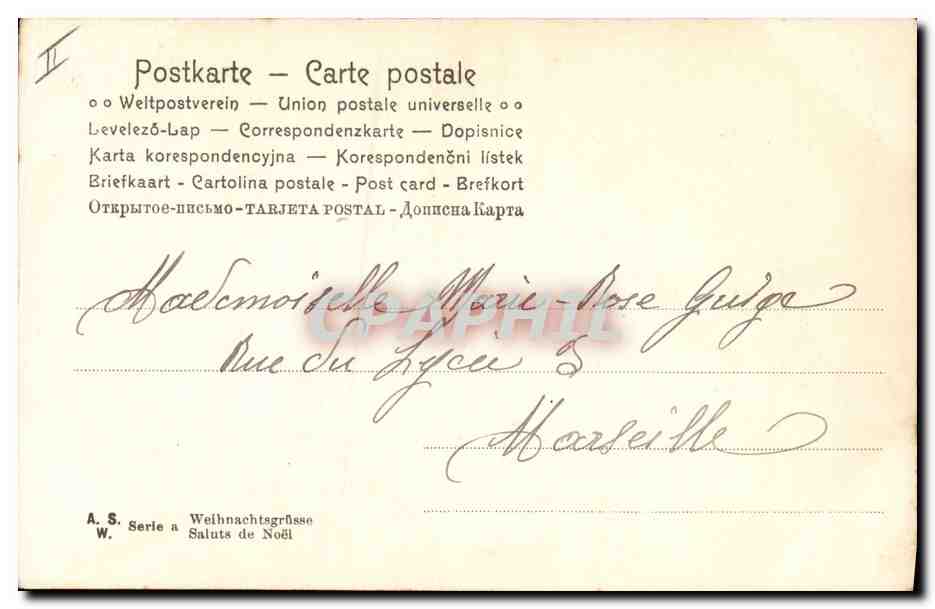 II
Postkarte – Carte postale
o o Weltpostverein — Union postale universelle o o
Levelező-Lap — Correspondenzkarte — Dopisnice
Karta korespondencyjna — Korespondenčni lístek
Briefkaart - Cartolina postale - Post card - Brefkort
Открытое-письмо-TARJETA POSTAL-Дописна Карта
Mademoiselle Marie-Rose Guige
CPAPHIL
Rue du Lycée 3
Marseille
A. S. W. Serie a Weihnachtsgrüsse
Saluts de Noël